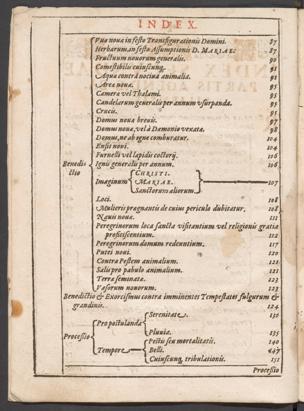 INDEX.
Vuæ nouæ in festo Transfigurationis Domini. 87
Herbarum in festo Assumptionis D. MARIAE. 87
Fructuum nouorum generalis. 90
Comestibilis cuiuscunq. 91
Aquæ contra nociua animalia. 91
Areæ nouæ. 95
Cameræ vel Thalami. 95
Candelarum generalis per annum vsurpanda. 95
Crucis. 95
Domus nouæ breuis. 97
Domus nouæ, vel à Dæmonio vexatæ. 98
Domus, ne ab igne comburatur. 104
Ensis noui. 104
Furnelli vel lapidis coctorij. 106
Ignis generalis per annum. 106
Benedictio
Imaginum CHRISTI. MARIAE. Sanctorum aliorum. 107
Loci. 108
Mulieris prægnantis de cuius periculo dubitatur. 108
Nauis nouæ. 111
Peregrinorum loca sancta visitantium vel religionis gratia
proficiscentium. 112
Peregrinorum domum redeuntium. 117
Putei noui. 120
Contra Pestem animalium. 121
Salis pro pabulo animalium. 121
Terræ seminatæ. 123
Vasorum nouorum. 123
Benedictio & Exorcismus contra imminentes Tempestates fulgurum &
grandinis. 124
Processio
Pro postulanda Serenitate. 130
Pluuia. 135
Tempore Pestis seu mortalitatis. 140
Belli. 147
Cuiuscunq. tribulationis. 151
Processio